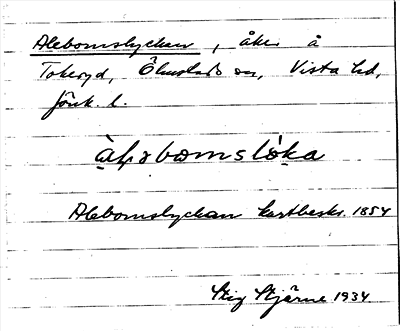 Alebomslyckan, åker å
Tokeryd, Ölmstads sn, Vista hd,
Jönk. l.
Alebomslyckan kartbeskr. 1854
Stig Stjärne 1934